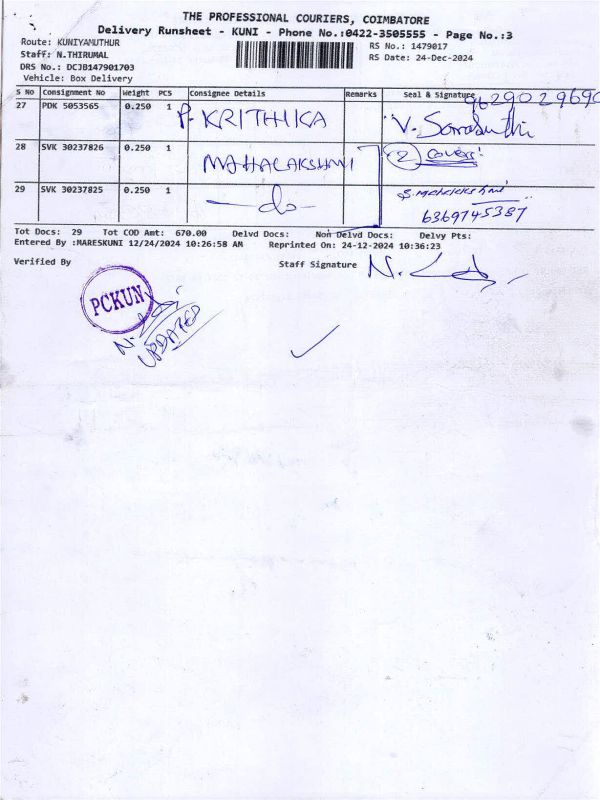 THE PROFESSIONAL COURIERS, COIMBATORE
Delivery Runsheet - KUNI - Phone No.:0422-3505555 - Page No.:3
Route: KUNIYAMUTHUR
RS No.: 1479017
Staff: N.THIRUMAL
RS Date: 24-Dec-2024
DRS No.: DCJB147901703
Vehicle: Box Delivery
S No Consignment No Weight PCS Consignee Details Remarks Seal & Signature
9629029690
27 PDK 5053565 0.250 1 P. KRITHIKA V. Sarasuthi
28 SVK 30237826 0.250 1 MAHALAKSHMI 2 covers!
29 SVK 30237825 0.250 1 -do-
6369745387
Tot Docs: 29 Tot COD Amt: 670.00 Delvd Docs: Non Delvd Docs: Delvy Pts:
Entered By :MARESKUNI 12/24/2024 10:26:58 AM Reprinted On: 24-12-2024 10:36:23
Verified By Staff Signature
PCKUN
UPDATED